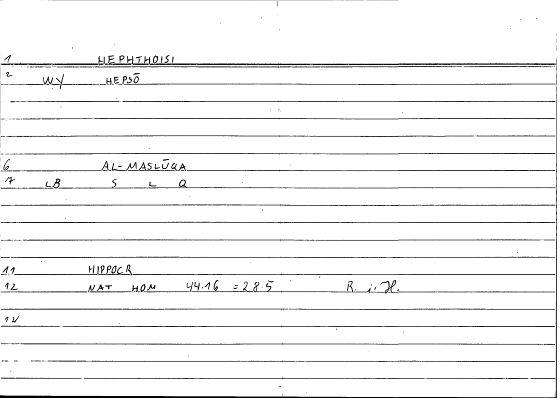 1 HEPHTHOISI
2 WY HEPSŌ
6 AL-MASLŪQA
7 LB S L Q
11 HIPPOCR
12 NAT HOM 44.16 = 28.5 R. i. H.
14